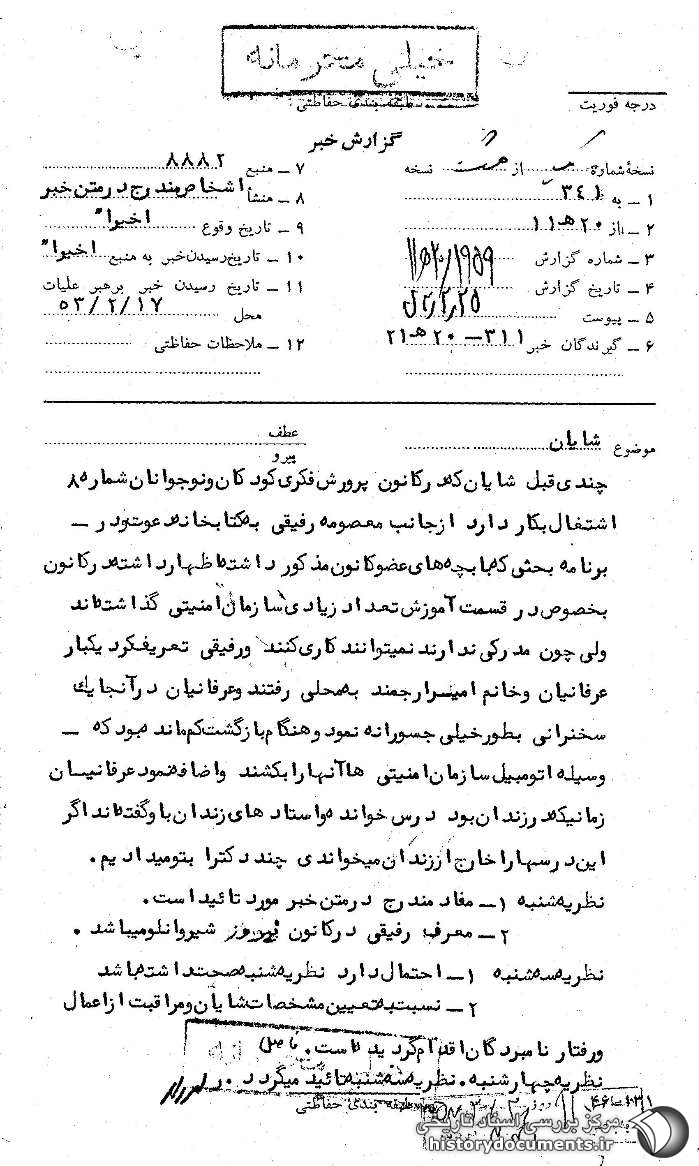 خیلی محرمانه
طبقه بندی حفاظتی
درجه فوریت
گزارش خبر
نسخهٔ شماره یک از هشت نسخه
۱ ـ به ۳٤۱
۲ ـ از ۲۰ ه‍ ۱۱
۳ ـ شماره گزارش
۴ ـ تاریخ گزارش
۵ ـ پیوست
۶ ـ گیرندگان خبر ۳۱۱ ـ ۲۰ ه‍ ۲۱
۷ ـ منبع ۸۸۸۲
۸ ـ منشأ اشخاص مندرج در متن خبر
۹ ـ تاریخ وقوع اخیرا"
۱۰ ـ تاریخ رسیدن خبر به منبع اخیرا"
۱۱ ـ تاریخ رسیدن خبر برهبر عملیات
محل ۵۳/۲/۱۷
۱۲ ـ ملاحظات حفاظتی
موضوع شایان
عطف
پیرو
چندی قبل شایان که در کانون پرورش فکری کودکان و نوجوانان شماره ۸
اشتغال بکار دارد از جانب معصومه رفیقی به کتابخانه دعوت و در ـ
برنامه بحثی که با بچه های عضو کانون مذکور داشته اظهار داشته در کانون
بخصوص در قسمت آموزش تعداد زیادی سازمان امنیتی گذاشته اند
ولی چون مدرکی ندارند نمیتوانند کاری کنند و رفیقی تعریف کرد یکبار
عرفانیان و خانم امیر ارجمند به محلی رفتند و عرفانیان در آنجا یك
سخنرانی بطور خیلی جسورانه نمود و هنگام بازگشت کم مانده بود که ـ
وسیله اتومبیل سازمان امنیتی ها آنها را بکشند و اضافه نمود عرفانیان
زمانیکه در زندان بود درس خوانده و استاد های زندان باو گفته اند اگر
این درسها را خارج از زندان میخواندی چند دکترا بتو میدادیم .
نظریه شنبه ۱ ـ مفاد مندرج در متن خبر مورد تائید است .
۲ ـ معرف رفیقی در کانون فیروز شیروانلو میباشد .
نظریه سه شنبه ۱ ـ احتمال دارد نظریه شنبه صحت داشته باشد
۲ ـ نسبت به تعیین مشخصات شایان و مراقبت از اعمال
و رفتار نامبردگان اقدام گردیده است .
نظریه چهارشنبه . نظریه سه شنبه تائید میگردد .
طبقه بندی حفاظتی
مرکز بررسی اسناد تاریخی
historydocuments.ir